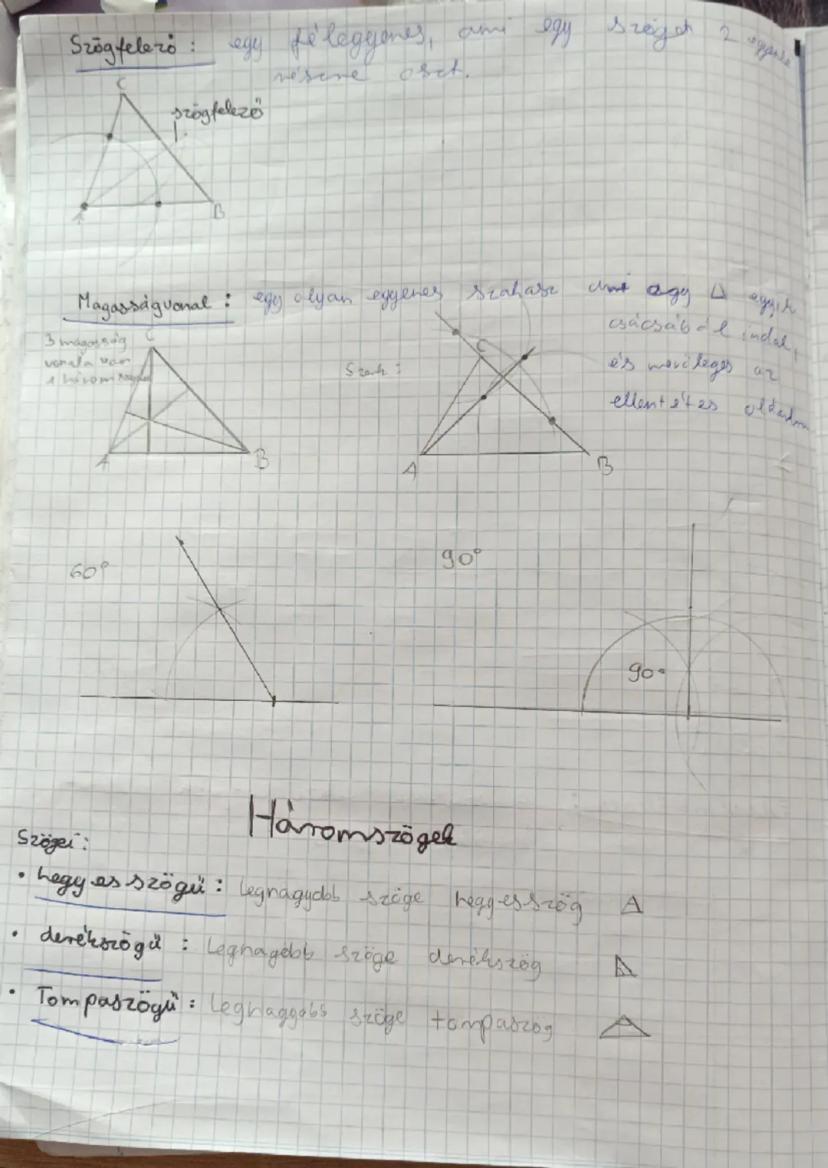 Szögfelező: egy félegyenes, ami egy szöget 2 egyenlő
részre oszt.
C
szögfelező
A
B
Magasságvonal: egy olyan egyenes szakasz ami egy △ egyik
csúcsából indul,
és merőleges az
ellentétes oldalra
3 magasság
vonala van
1 háromszögnek
C
A
B
Szerk:
C
A
B
60°
90°
90°
Háromszögek
Szögei:
• hegyesszögű: legnagyobb szöge hegyesszög
• derékszögű: legnagobb szöge derékszög
• Tompaszögű: legnaggobb szöge tompaszög